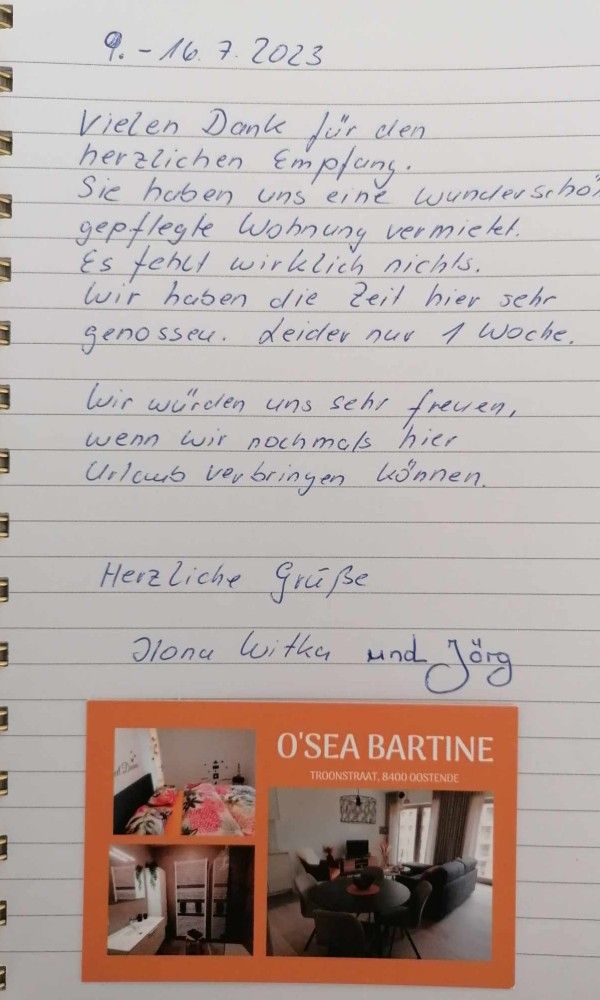 9. - 16. 7. 2023
Vielen Dank für den
herzlichen Empfang.
Sie haben uns eine wunderschö
gepflegte Wohnung vermietet.
Es fehlt wirklich nichts.
Wir haben die Zeit hier sehr
genossen. Leider nur 1 Woche.
Wir würden uns sehr freuen,
wenn wir nochmals hier
Urlaub verbringen können.
Herzliche Grüße
Ilona Witka und Jörg
O'SEA BARTINE
TROONSTRAAT, 8400 OOSTENDE